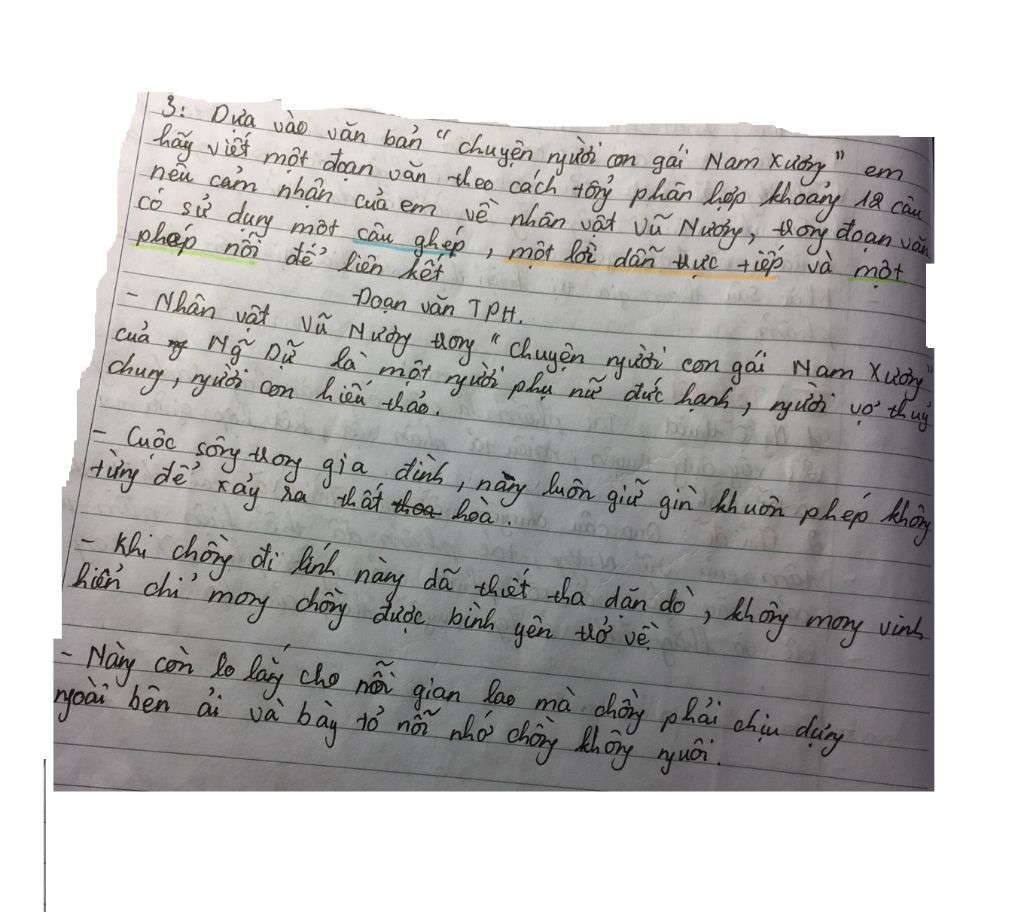 3: Dựa vào văn bản "chuyện người con gái Nam Xương" em
hãy viết một đoạn văn theo cách tổng phân hợp khoảng 12 câu
nêu cảm nhận của em về nhân vật Vũ Nương, trong đoạn văn
có sử dụng một câu ghép, một lời dẫn trực tiếp và một
phép nối để liên kết
Đoạn văn TPH.
- Nhân vật Vũ Nương trong "chuyện người con gái Nam Xương"
của Ng Dữ là một người phụ nữ đức hạnh, người vợ thuỷ
chung, người con hiếu thảo.
- Cuộc sống trong gia đình, nàng luôn giữ gìn khuôn phép không
từng để xảy ra thất hoà.
- Khi chồng đi lính nàng dã thiết tha dăn dò, không mong vinh
hiển chỉ mong chồng được bình yên trở về
- Nàng còn lo lắng cho nỗi gian lao mà chồng phải chịu dựng
ngoài bên ải và bày tỏ nỗi nhớ chồng không nguôi.